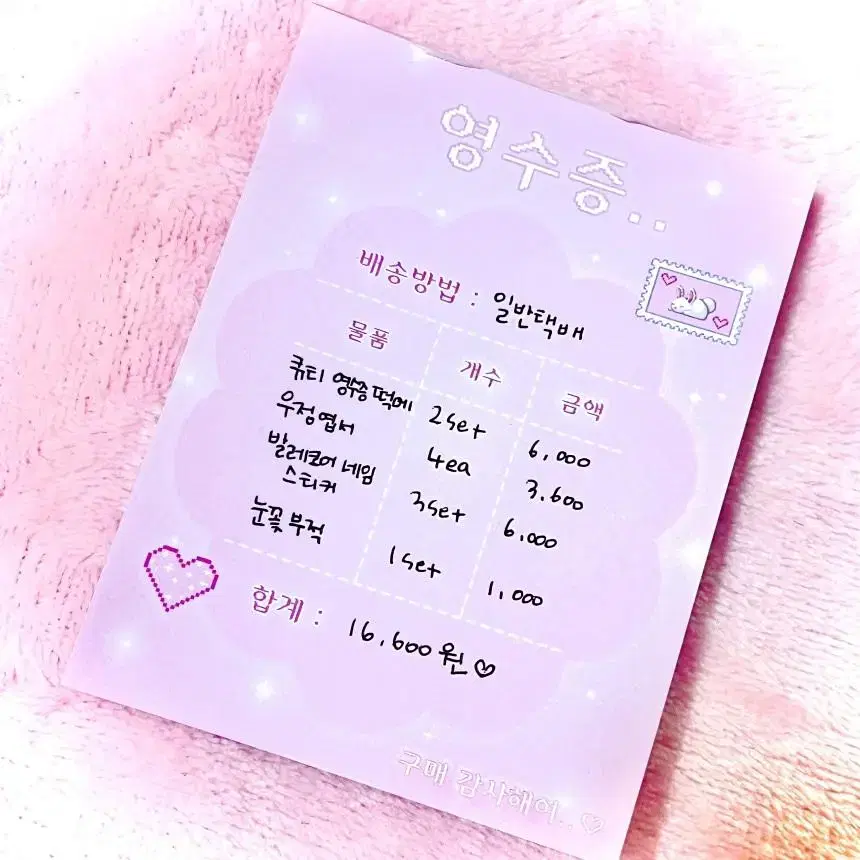 영수증..
배송방법 : 일반택배
물품 개수 금액
큐티 영수증 떡메 2set 6,000
우정엽서 4ea 3.600
발레코어 네임 스티커 3set 6,000
눈꽃 부적 1set 1,000
합계 : 16,600원♡
구매 감사해여..♡